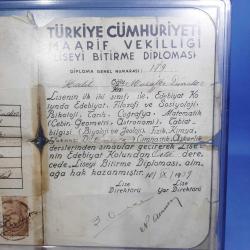 TÜRKİYE CÜMHURİYETİ
MAARİF VEKİLLİĞİ
LİSEYİ BİTİRME DİPLOMASI
DİPLOMA GENEL NUMARASI: 179
Halit Oğlu Muzaffer
Lisenin ilk iki sınıfı ile, Edebiyat Ko
lunda Edebiyat, Filozofi ve Sosyoloji,
Psikoloji, Tarih, Coğrafya, Matematik
(Cebir, Geometri, Astronomi), Tabiat
bilgisi (Biyoloji ve Zooloji, Fizik, Kimya,
Askerlik
derslerinden sınaçlar geçirerek Lise-
nin Edebiyat Kolundan derec
cede Liseyi Bitirme Diploması al-
mağa hak kazanmıştır. IX/1939
Lise Lise
Direktörü Yar Direktörü